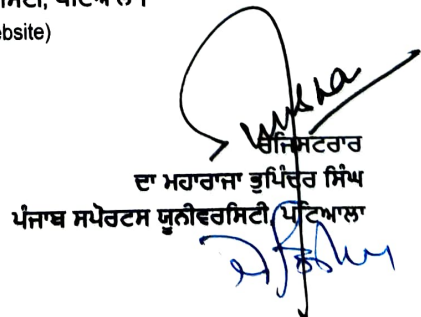 ਪਟਿਆਲਾ।
ebsite)
ਰਜਿਸਟਰਾਰ
ਦਾ ਮਹਾਰਾਜਾ ਭੁਪਿੰਦਰ ਸਿੰਘ
ਪੰਜਾਬ ਸਪੋਰਟਸ ਯੂਨੀਵਰਸਿਟੀ, ਪਟਿਆਲਾ